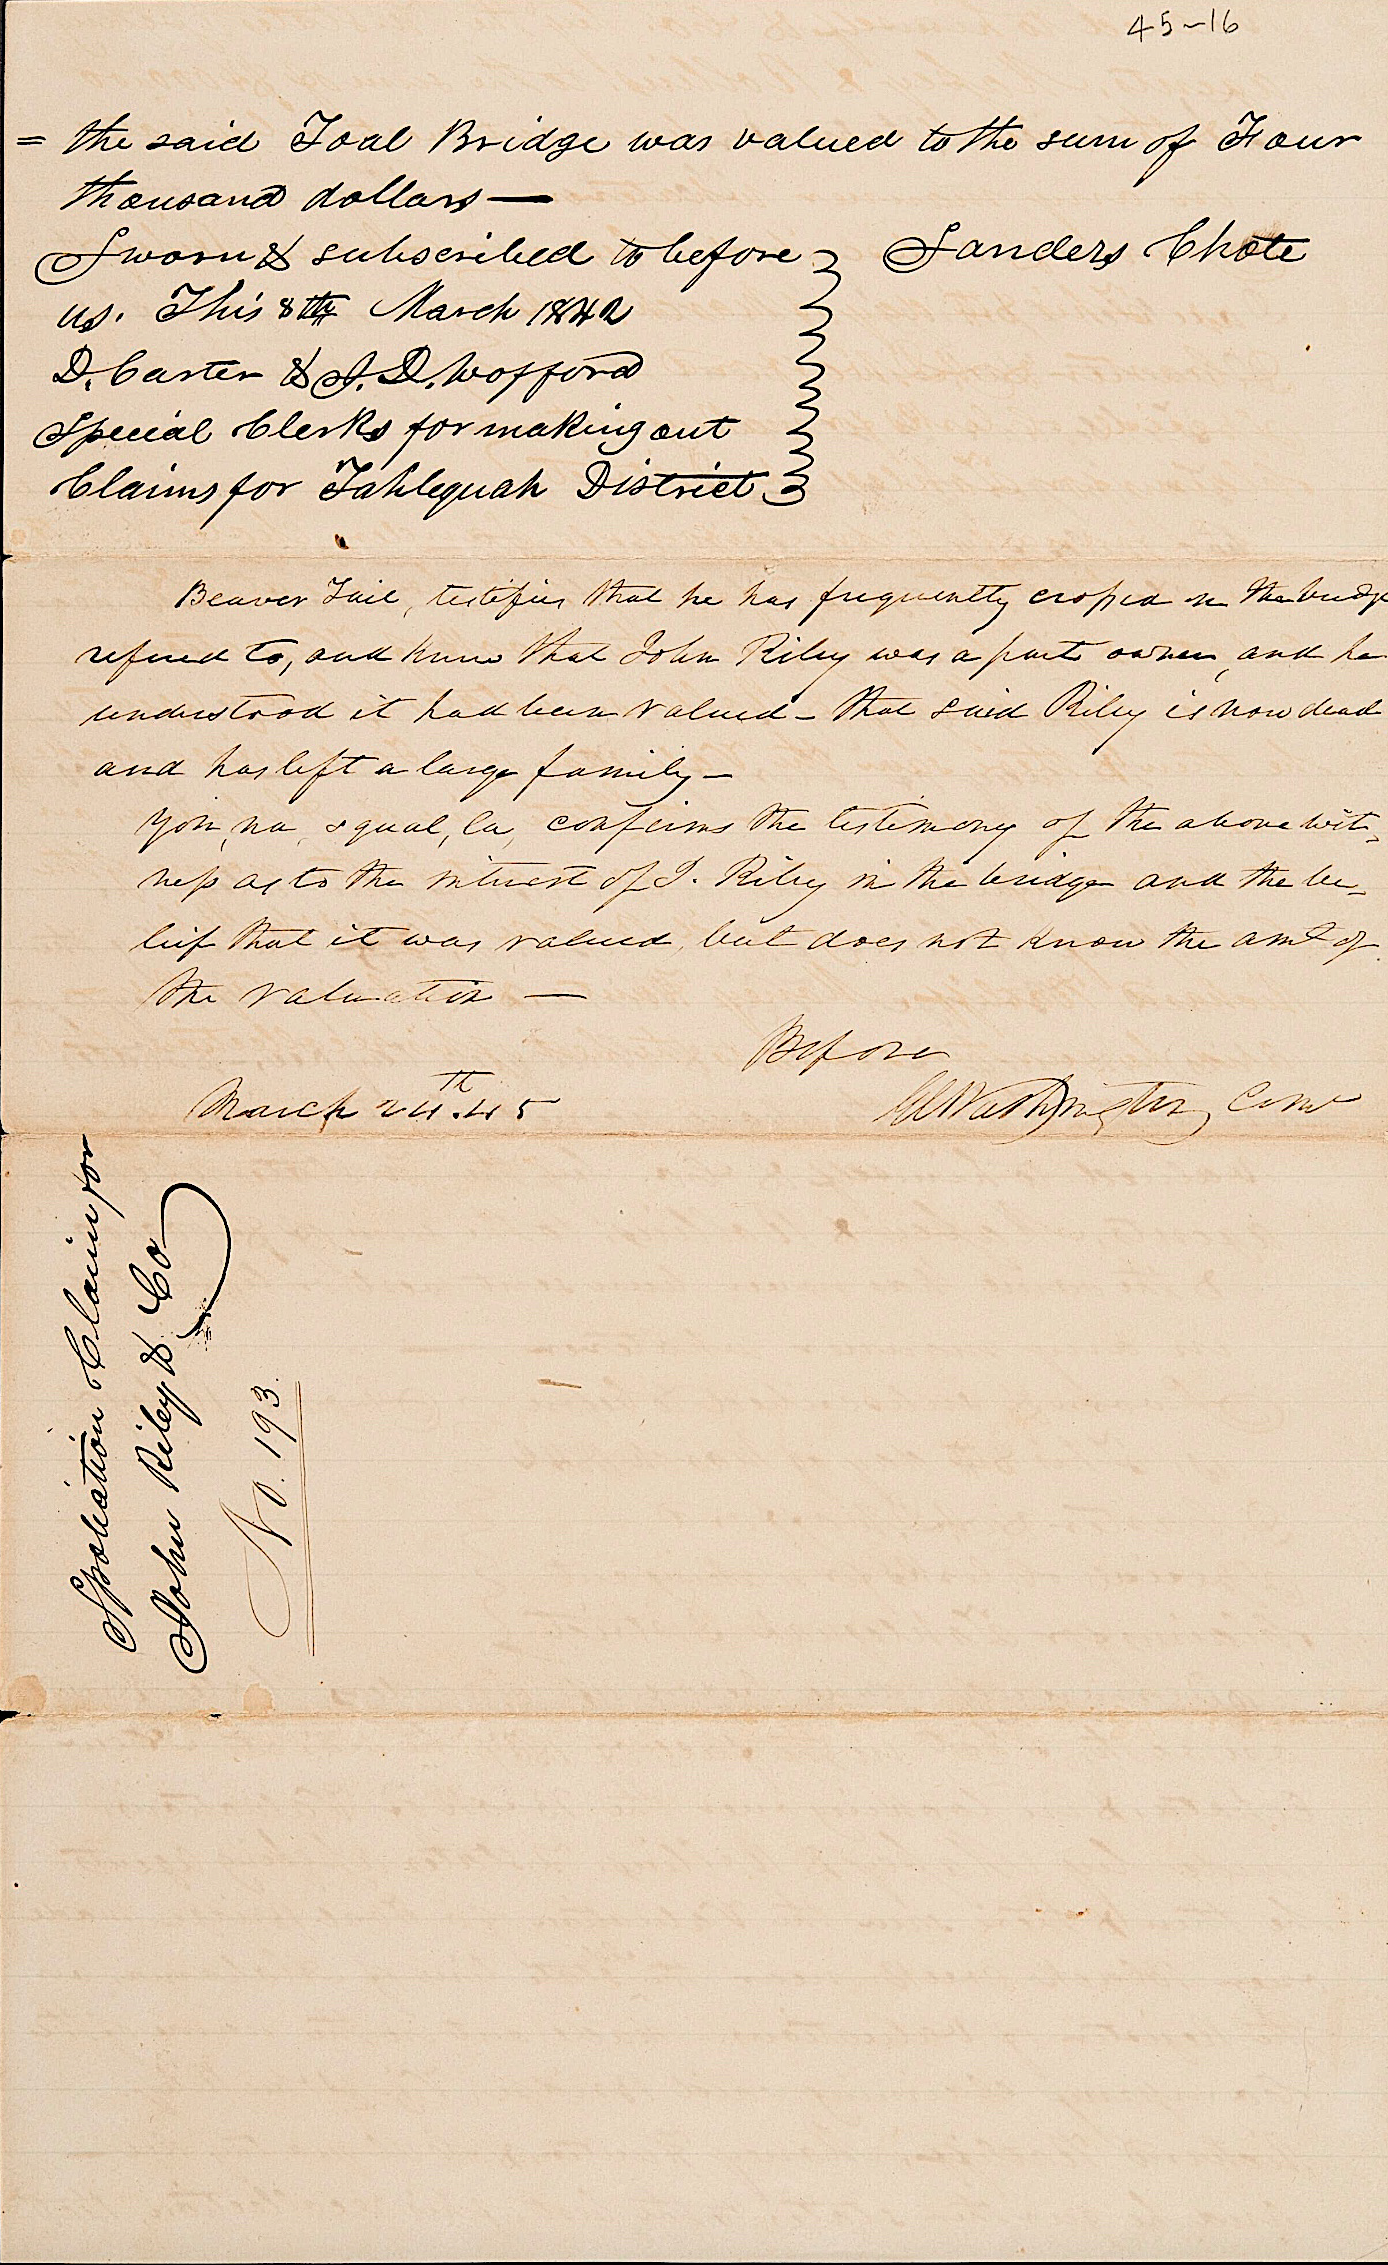 45-16
= the said Toal Bridge was valued to the sum of Four
thousand dollars —
Sworn & subscribed to before
us. This 8th March 1842
D. Carter & J. D. Wofford
Special Clerks for making out
Claims for Tahlequah District
Sanders Chote
Beaver Tail, testifies that he has frequently crossed on the bridge
refered to, and knew that John Riley was a part owner, and he
understood it had been valued – that said Riley is now dead
and has left a large family –
Yon, na, squal, la, confirms the testimony of the above wit-
ness as to the interest of J. Riley in the bridge and the be-
lief that it was valued, but does not know the amt of
the valuation —
Before
March 24th. 45
Washington Comr
Spoliation Claim for
John Riley & Co
No. 193.